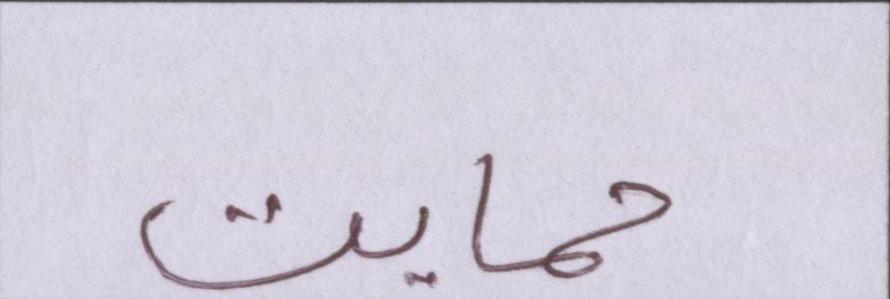 حمایت